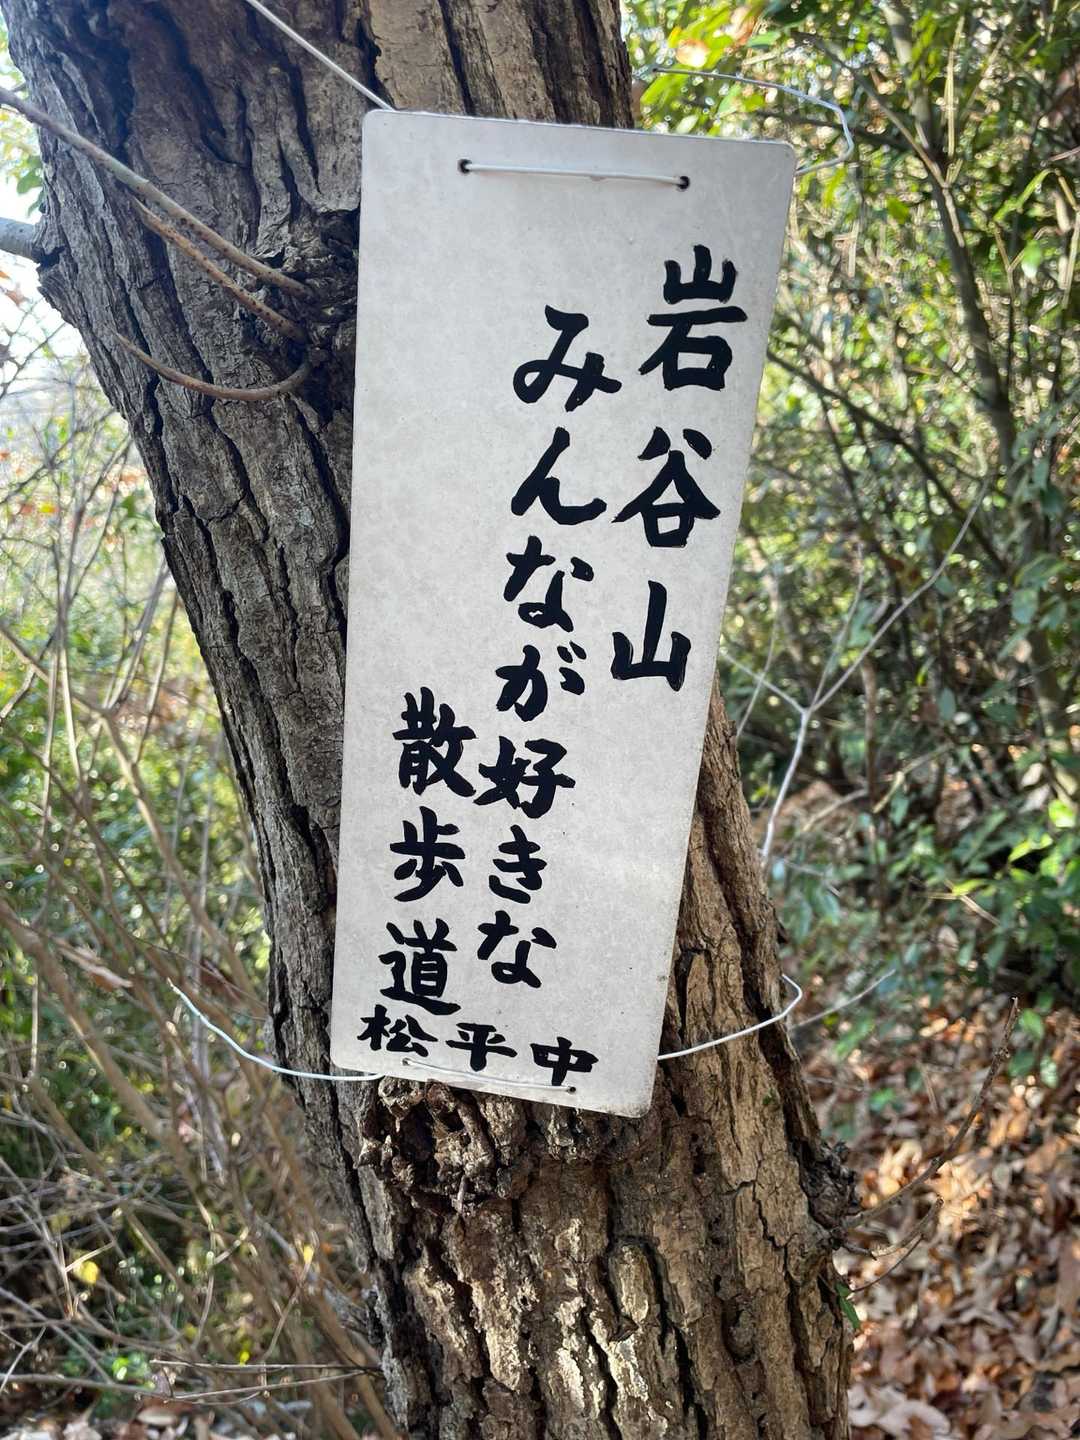 岩谷山
みんなが好きな
散歩道
松平中